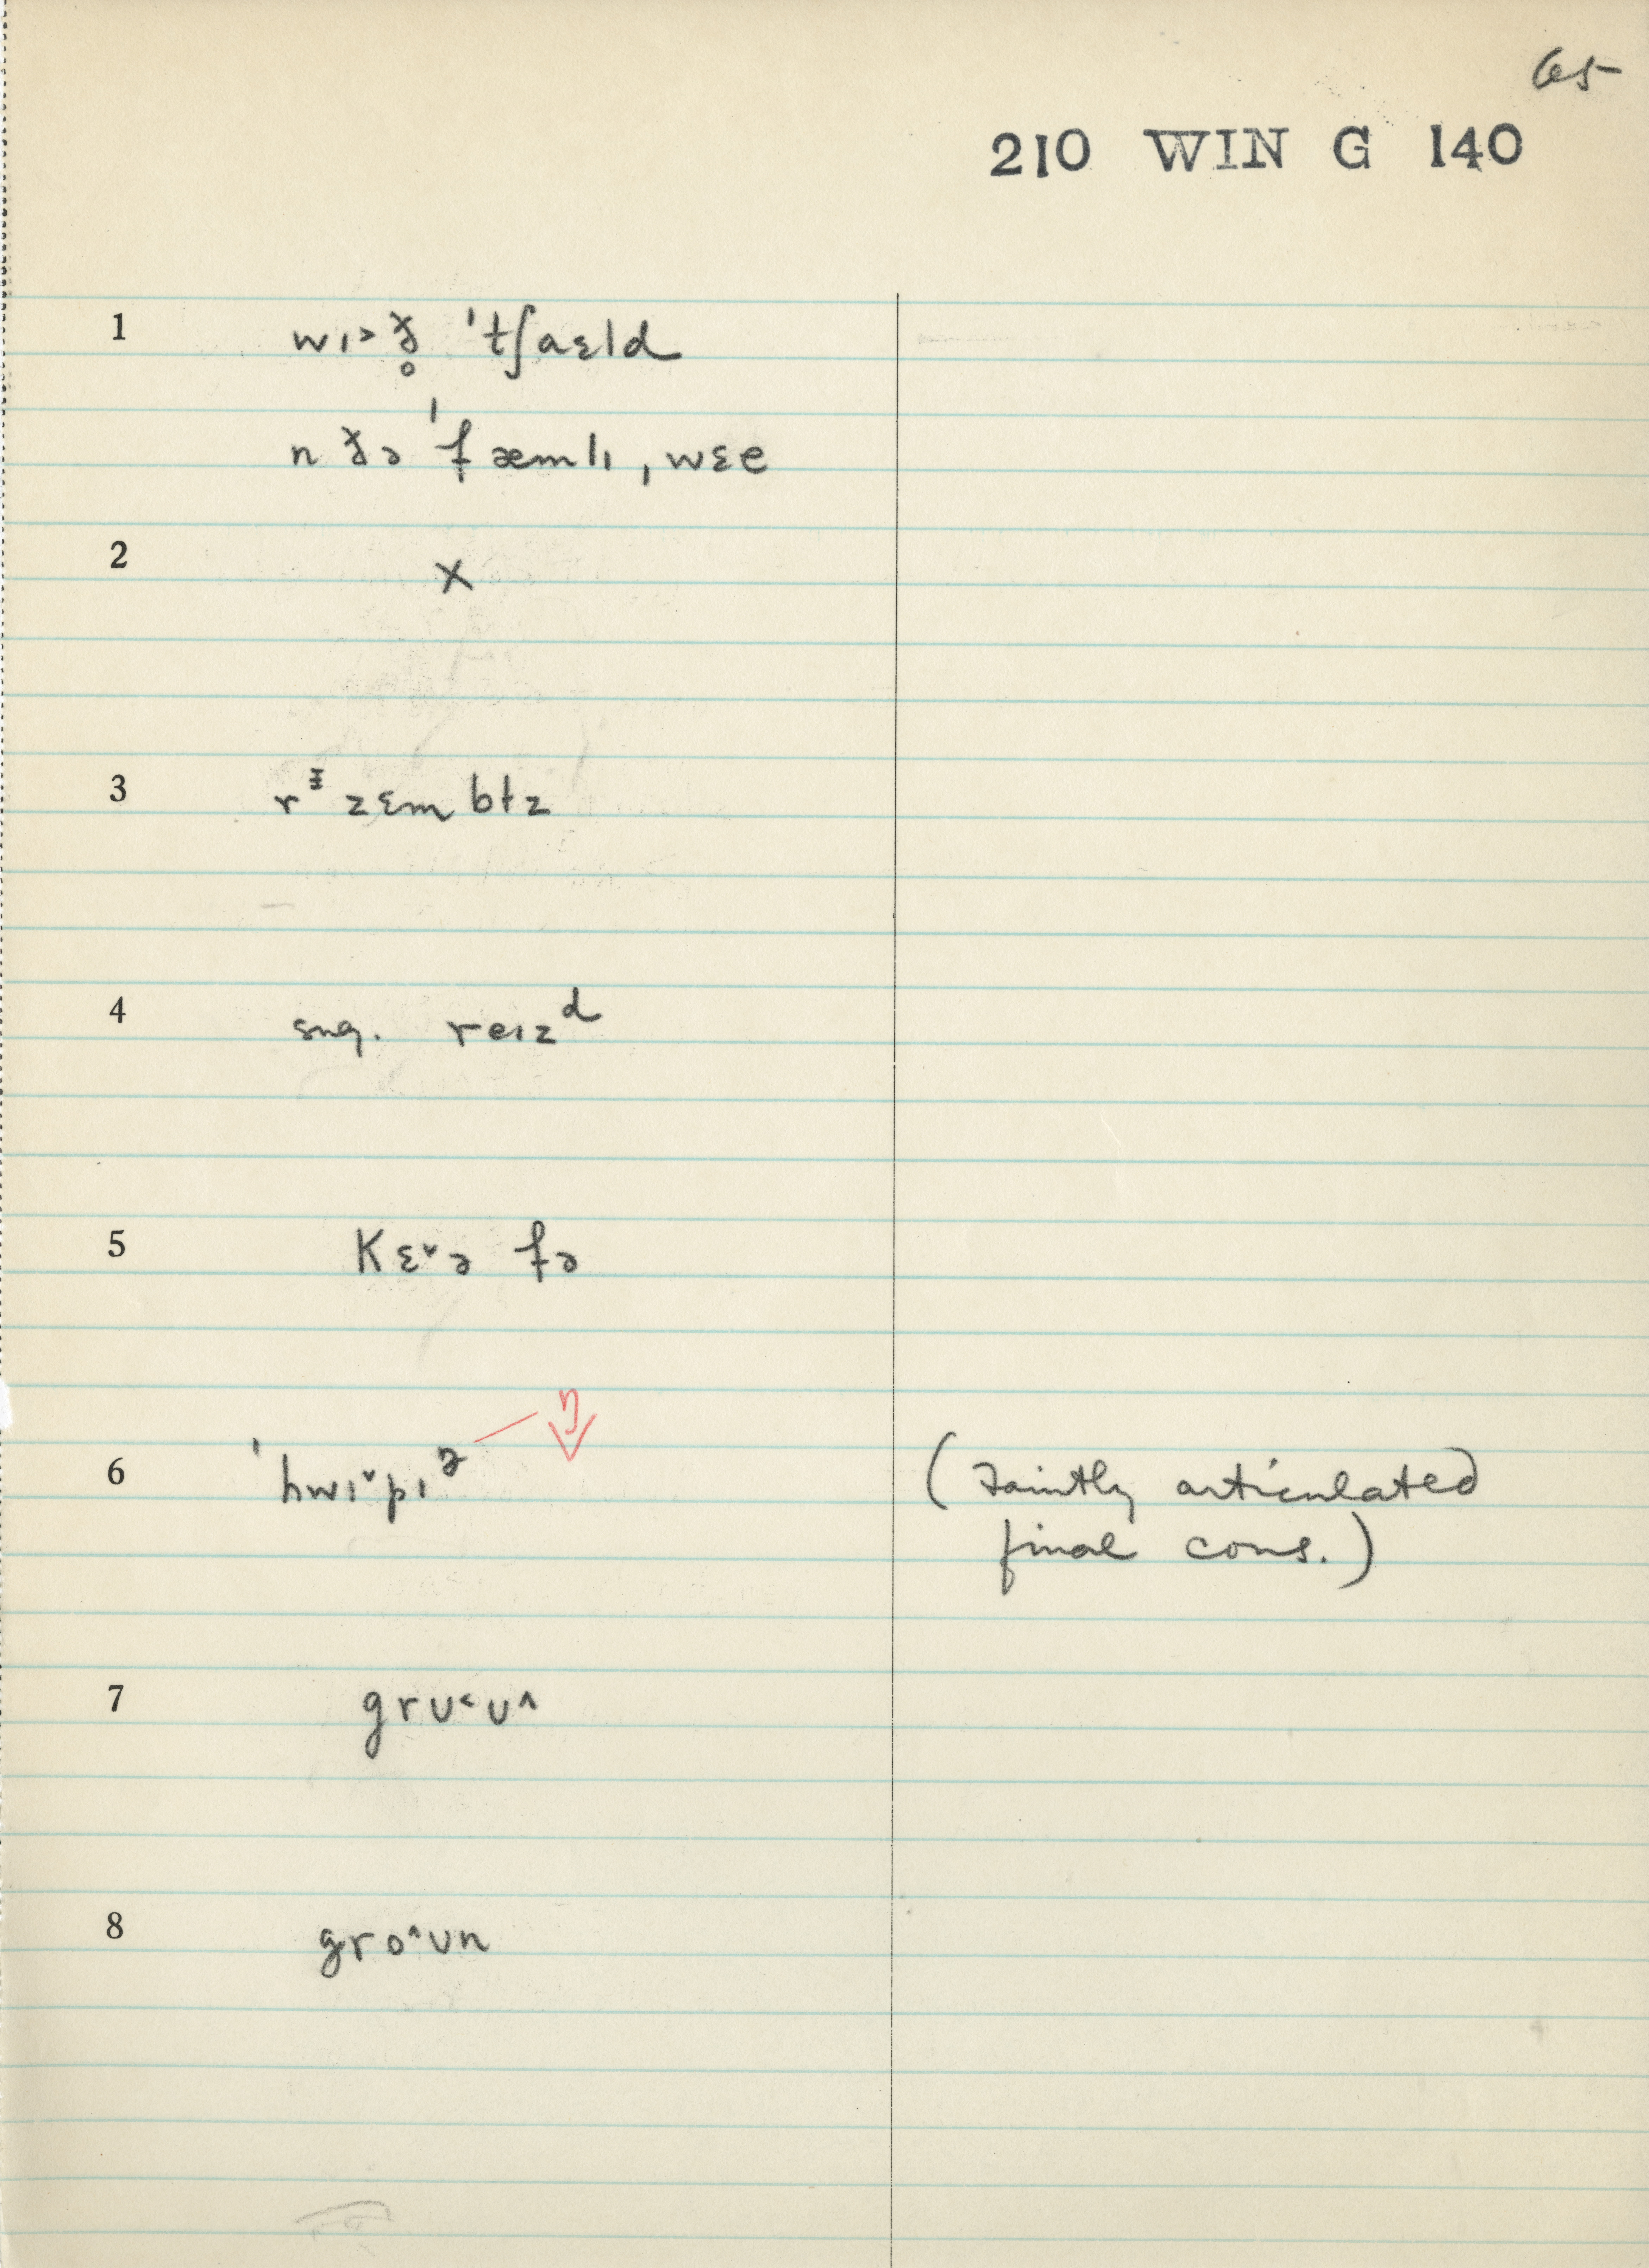 65
210 WIN G 140
1 wɪ˃ð̥ ˈtʃaɛld
n ðə ˈfæmlɪ ˌwɛe
2 X
3 rᵻzɛmbɫz
4 sug. reɪzᵈ
5 Kɛ˅ə fə
6 ˈhwɪ˅pɪᵊ ŋ (Faintly articulated
final cons.)
7 grʊ˂ʊ˄
8 gro˄ʊn